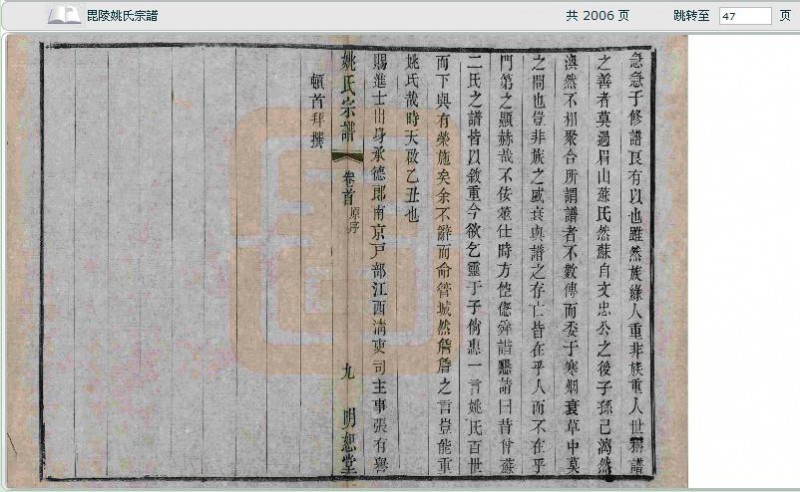 毘陵姚氏宗譜
共 2006 页
跳转至 47 页
急急于修譜良有以也雖然族緣人重非族重人世稱譜
之善者莫過眉山蘇氏然蘇自文忠公之後子孫已漓然
渙然不相聚合所謂譜者不數傳而委于寒烟衰草中莫
之問也豈非族之盛衰與譜之存亡皆在乎人而不在乎
門第之顯赫哉不佞筮仕時方倥傯舜諧懇請曰昔曾蘇
二氏之譜皆以敘重今欲乞靈于子倘惠一言姚氏百世
而下與有榮施矣余不辭而命管城然詹詹之言豈能重
姚氏哉時天啟乙丑也
賜進士出身承德郎南京戸部江西清吏司主事張有譽
頓首拜撰
姚氏宗譜
卷首
原序
九
明恕堂